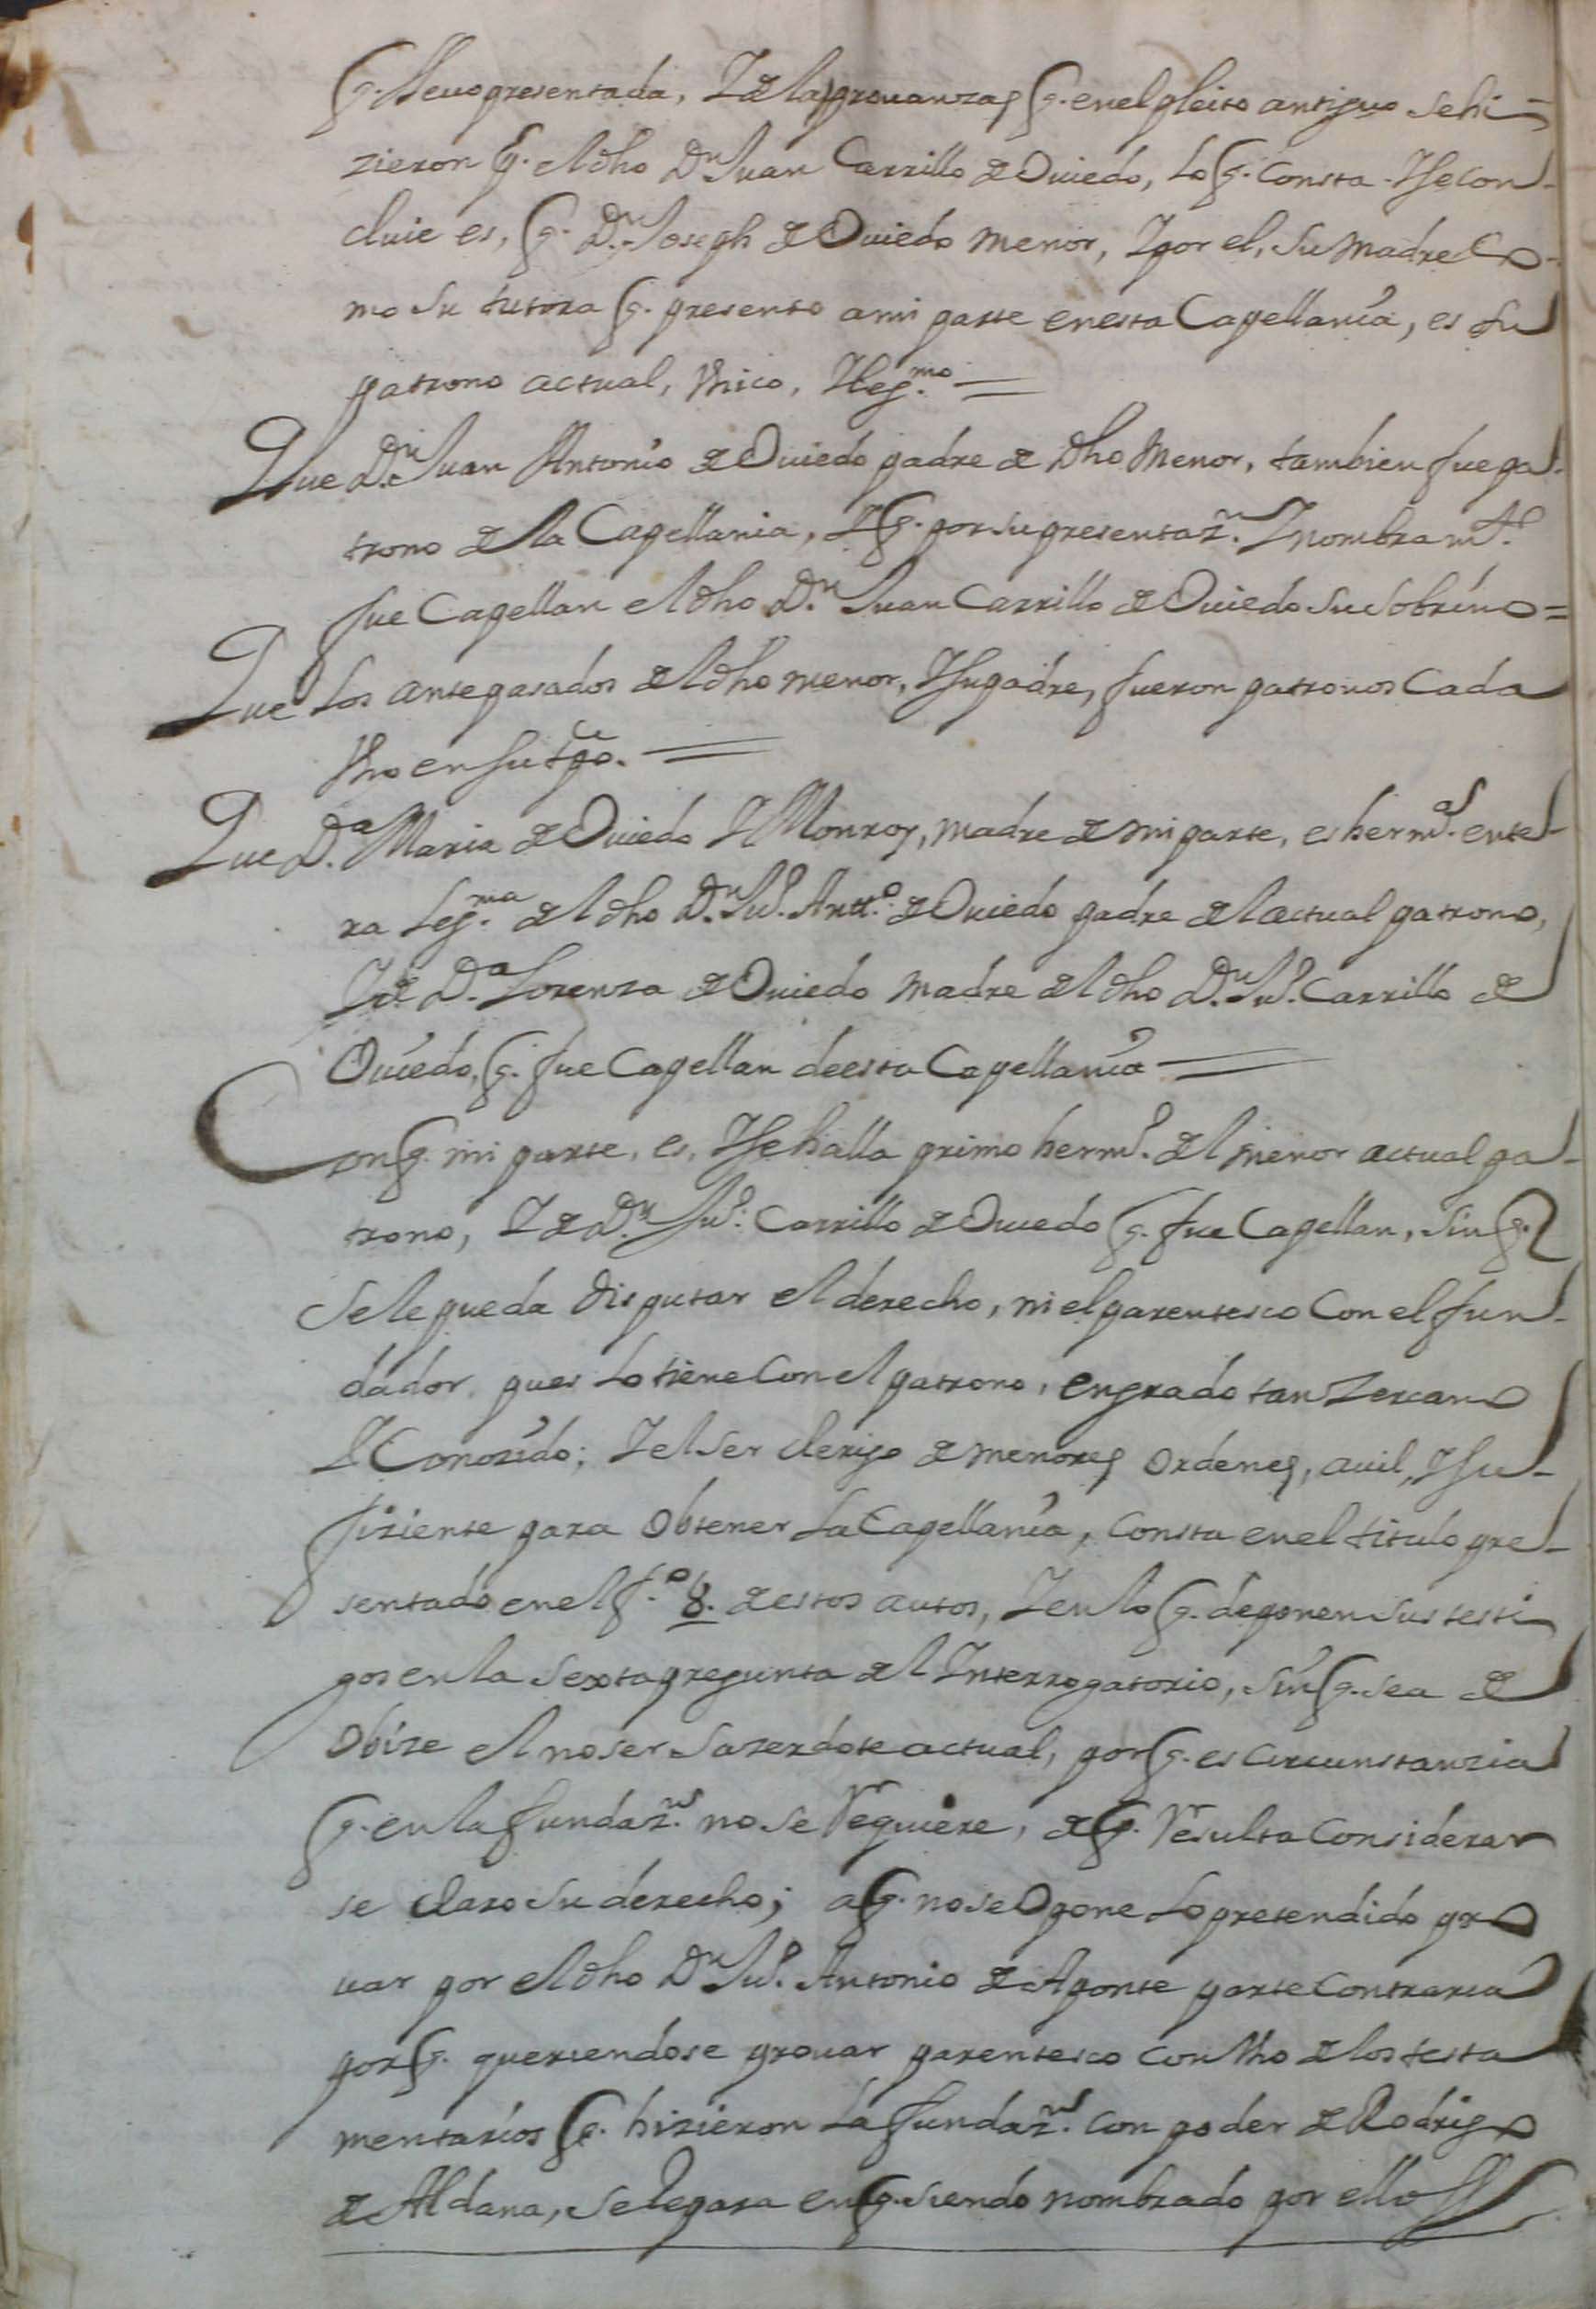 q. lleuo presentada, Y de las prouanzas q. en el pleito antiguo se hi-
zieron q. el dho Dn. Juan Carrillo de Ouiedo, Lo q. Consta Y se con-
cluie es, q. Dn. Joseph de Ouiedo menor, Y por el, su madre Co-
mo su tutora q. presento a mi parte en esta Capellanía, es su
patrono actual, Vnico, Y leg.mo =
Que Dn. Juan Antonio de Ouiedo padre de dho Menor, tambien fue pa-
trono de la Capellania, Y q. por su presentaz.n Y nombram.to
fue Capellan el dho Dn. Juan Carrillo de Ouiedo su sobrino =
Que los antepasados del dho menor, Y su padre, fueron patronos Cada
Vno en su tpo. =
Que Da. Maria de Ouiedo Y Monroy, madre de mi parte, es herm.a ente-
ra Leg.ma del dho Dn. Ju.o Antt.o de Ouiedo padre del actual patrono,
Y de Da. Lorenza de Ouiedo madre del dho Dn. Ju.o Carrillo de
Ouiedo, q. fue Capellan de esta Capellanía =
Con q. mi parte, es, Y se halla primo herm.o del menor actual pa-
trono, Y de Dn. Ju.o Carrillo de Ouiedo q. fue Capellan, sin q.
se le pueda disputar el derecho, ni el parentesco Con el fun-
dador, pues Lo tiene Con el patrono, en grado tan Zercano
Y Conozido; Y el ser clerigo de menores ordenes, auil, Y su-
fiziente para obtener La Capellanía, Consta en el titulo pre-
sentado en el f.o 8. de estos autos, Y en lo q. deponen sus testi
gos en la sexta pregunta del Interrogatorio, sin q. sea de
Obize el no ser Sazerdote actual, por q. es Circunstanzia
q. en la fundaz.n no se Requiere, de q. Resulta Considerar
se claro su derecho; a q. no se Opone Lo pretendido pro
uar por el dho Dn. Ju.o Antonio de Aponte parte Contraria
por q. queriendose prouar parentesco con Vno de los testa
mentarios q. hizieron La fundaz.n con poder de Rodrigo
de Aldana, se repara en q. siendo nombrado por ellos